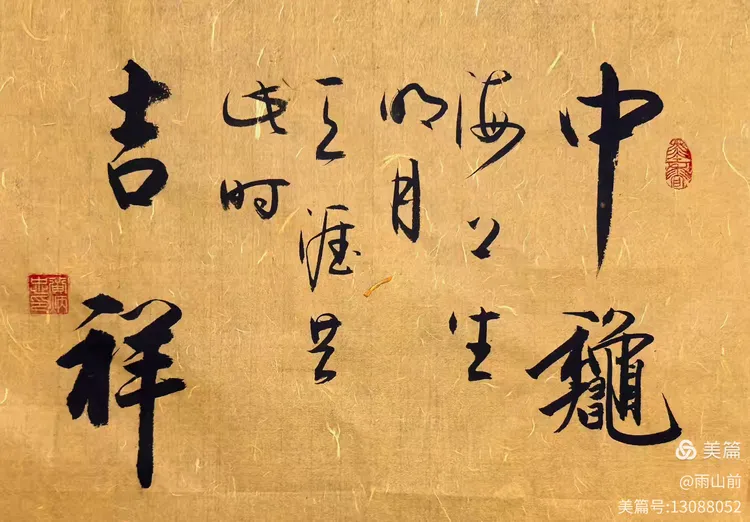 中龝
海上生
明月
天涯共
此时
吉祥
美篇
@雨山前
美篇号:13088052